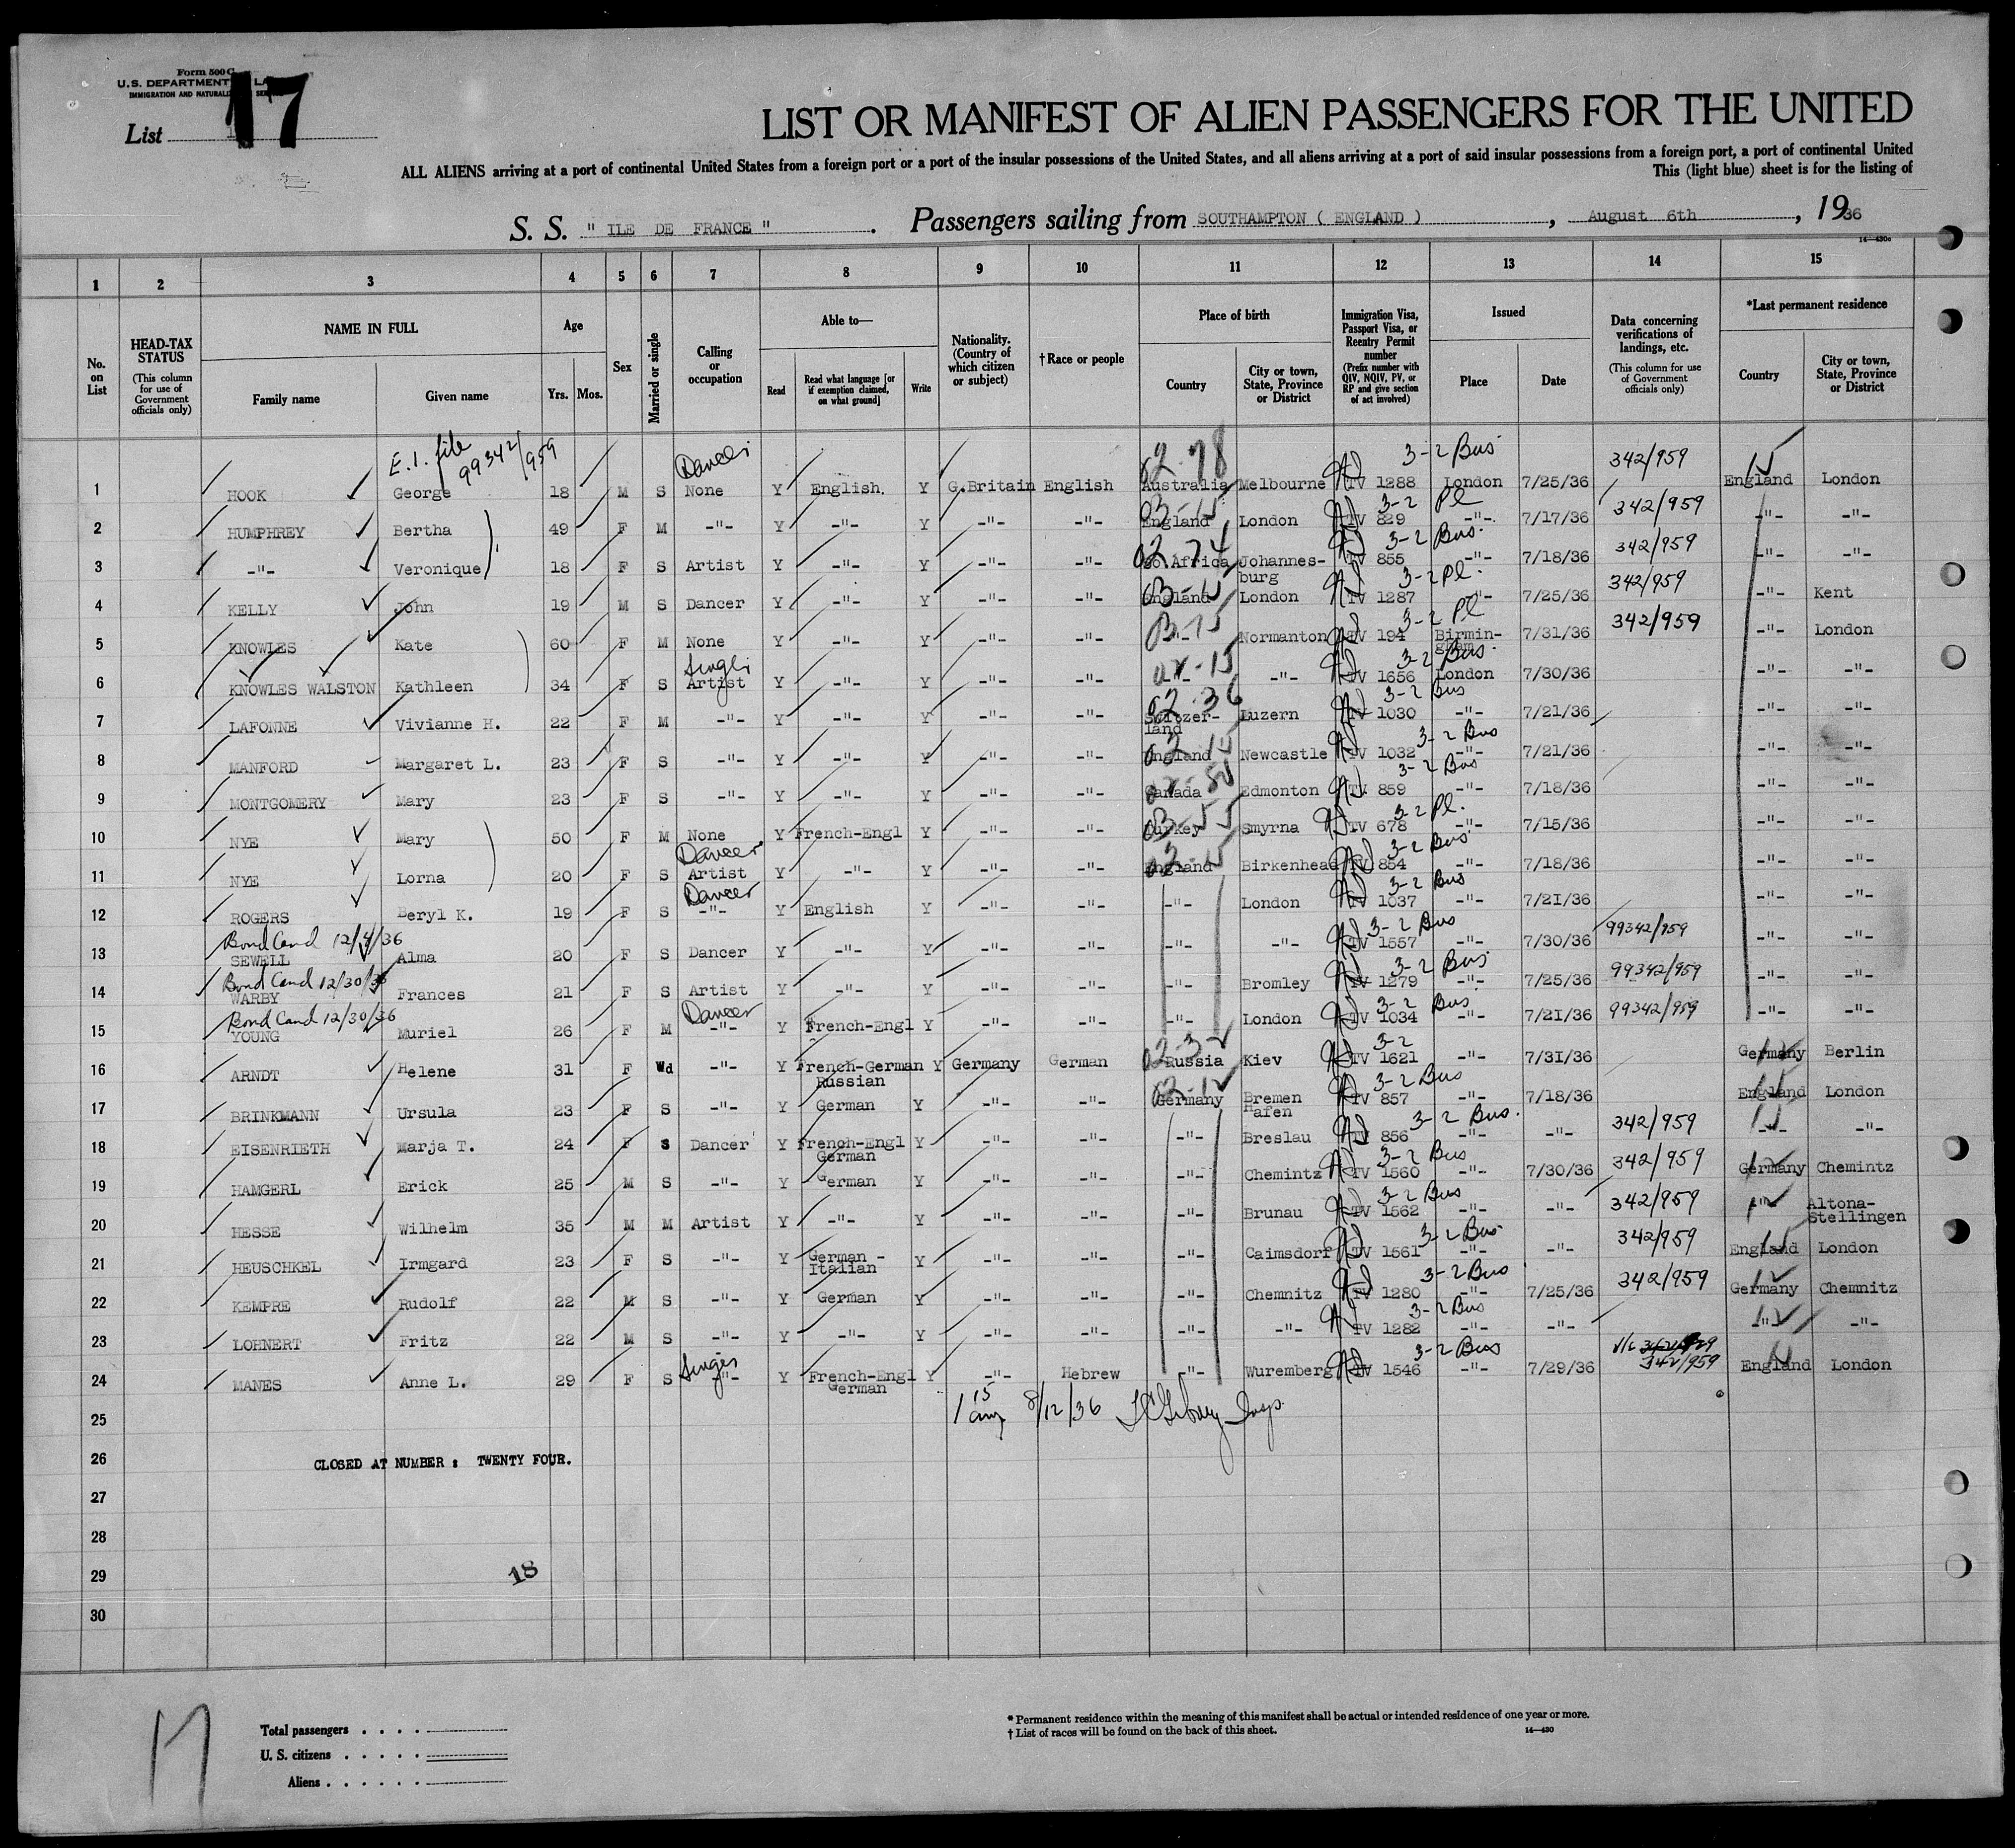 Form 500 C
U.S. DEPARTMENT LA
IMMIGRATION AND NATURALI SER
List 17
LIST OR MANIFEST OF ALIEN PASSENGERS FOR THE UNITED
ALL ALIENS arriving at a port of continental United States from a foreign port or a port of the insular possessions of the United States, and all aliens arriving at a port of said insular possessions from a foreign port, a port of continental United
This (light blue) sheet is for the listing of
S. S. " ILE DE FRANCE " . Passengers sailing from SOUTHAMPTON ( ENGLAND ) , August 6th , 1936
14—430c
1 2 3 4 5 6 7 8 9 10 11 12 13 14 15
No. on List
HEAD-TAX STATUS (This column for use of Government officials only)
NAME IN FULL
Family name Given name
Age
Yrs. Mos.
Sex
Married or single
Calling or occupation
Able to—
Read Read what language [or if exemption claimed, on what ground] Write
Nationality. (Country of which citizen or subject)
† Race or people
Place of birth
Country City or town, State, Province or District
Immigration Visa, Passport Visa, or Reentry Permit number (Prefix number with QIV, NQIV, PV, or RP and give section of act involved)
Issued
Place Date
Data concerning verifications of landings, etc. (This column for use of Government officials only)
*Last permanent residence
Country City or town, State, Province or District
E.I. file 99342/959 Dancer 2-78 3-2 Bus 342/959
1 HOOK George 18 M S None Y English. Y G.Britain English Australia Melbourne TV 1288 London 7/25/36 England London
3-2 Pl 342/959
2 HUMPHREY Bertha 49 F M -"- Y -"- Y -"- -"- England London TV 829 -"- 7/17/36 -"- -"-
3-2 Bus. 342/959
3 -"- Veronique 18 F S Artist Y -"- Y -"- -"- So.Africa Johannes-burg TV 855 -"- 7/18/36 -"- -"-
3-2 Pl. 342/959
4 KELLY John 19 M S Dancer Y -"- Y -"- -"- England London TV 1287 -"- 7/25/36 -"- Kent
3-2 Pl 342/959
5 KNOWLES Kate 60 F M None Y -"- Y -"- -"- -"- Normanton TV 194 Birmin-gham 7/31/36 -"- London
3-2 Bus.
6 KNOWLES WALSTON Kathleen 34 F S Artist Y -"- Y -"- -"- -"- -"- TV 1656 London 7/30/36 -"- -"-
3-2 Bus
7 LAFONNE Vivianne H. 22 F M -"- Y -"- Y -"- -"- Switzer-land Luzern TV 1030 -"- 7/21/36 -"- -"-
3-2 Bus
8 MANFORD Margaret L. 23 F S -"- Y -"- Y -"- -"- England Newcastle TV 1032 -"- 7/21/36 -"- -"-
3-2 Bus
9 MONTGOMERY Mary 23 F S -"- Y -"- Y -"- -"- Canada Edmonton TV 859 -"- 7/18/36 -"- -"-
3-2 Pl.
10 NYE Mary 50 F M None Y French-Engl Y -"- -"- Turkey Smyrna TV 678 -"- 7/15/36 -"- -"-
Dancer 3-2 Bus
11 NYE Lorna 20 F S Artist Y -"- Y -"- -"- England Birkenhead TV 854 -"- 7/18/36 -"- -"-
Dancer 3-2 Bus
12 ROGERS Beryl K. 19 F S -"- Y English Y -"- -"- -"- London TV 1037 -"- 7/21/36 -"- -"-
Bond Cand 12/4/36 3-2 Bus 99342/959
13 SEWELL Alma 20 F S Dancer Y -"- Y -"- -"- -"- -"- TV 1557 -"- 7/30/36 -"- -"-
Bond Cand 12/30/36 3-2 Bus 99342/959
14 WARBY Frances 21 F S Artist Y -"- Y -"- -"- -"- Bromley TV 1279 -"- 7/25/36 -"- -"-
Bond Cand 12/30/36 Dancer 3-2 Bus 99342/959
15 YOUNG Muriel 26 F M -"- Y French-Engl Y -"- -"- -"- London TV 1034 -"- 7/21/36 -"- -"-
3-2
16 ARNDT Helene 31 F Wd -"- Y French-German Russian Y Germany German Russia Kiev TV 1621 -"- 7/31/36 Germany Berlin
3-2 Bus
17 BRINKMANN Ursula 23 F S -"- Y German Y -"- -"- Germany Bremen Hafen TV 857 -"- 7/18/36 England London
3-2 Bus. 342/959
18 EISENRIETH Marja T. 24 F S Dancer Y French-Engl German Y -"- -"- -"- Breslau TV 856 -"- -"- -"- -"-
3-2 Bus 342/959
19 HAMGERL Erick 25 M S -"- Y German Y -"- -"- -"- Chemintz TV 1560 -"- 7/30/36 Germany Chemintz
3-2 Bus 342/959
20 HESSE Wilhelm 35 M M Artist Y -"- Y -"- -"- -"- Brunau TV 1562 -"- -"- -"- Altona-Stellingen
3-2 Bus 342/959
21 HEUSCHKEL Irmgard 23 F S -"- Y German - Italian Y -"- -"- -"- Caimsdorf TV 1561 -"- -"- England London
3-2 Bus 342/959
22 KEMPRE Rudolf 22 M S -"- Y German Y -"- -"- -"- Chemnitz TV 1280 -"- 7/25/36 Germany Chemnitz
3-2 Bus
23 LOHNERT Fritz 22 M S -"- Y -"- Y -"- -"- -"- -"- TV 1282 -"- -"- -"- -"-
Singer 3-2 Bus 342/959
24 MANES Anne L. 29 F S -"- Y French-Engl German Y -"- Hebrew -"- Wuremberg TV 1546 -"- 7/29/36 England London
25 8/12/36 Insp.
26 CLOSED AT NUMBER : TWENTY FOUR.
27
28
29 18
30
17
Total passengers . . . .
U. S. citizens . . . . .
Aliens . . . . . .
* Permanent residence within the meaning of this manifest shall be actual or intended residence of one year or more.
† List of races will be found on the back of this sheet. 14—430